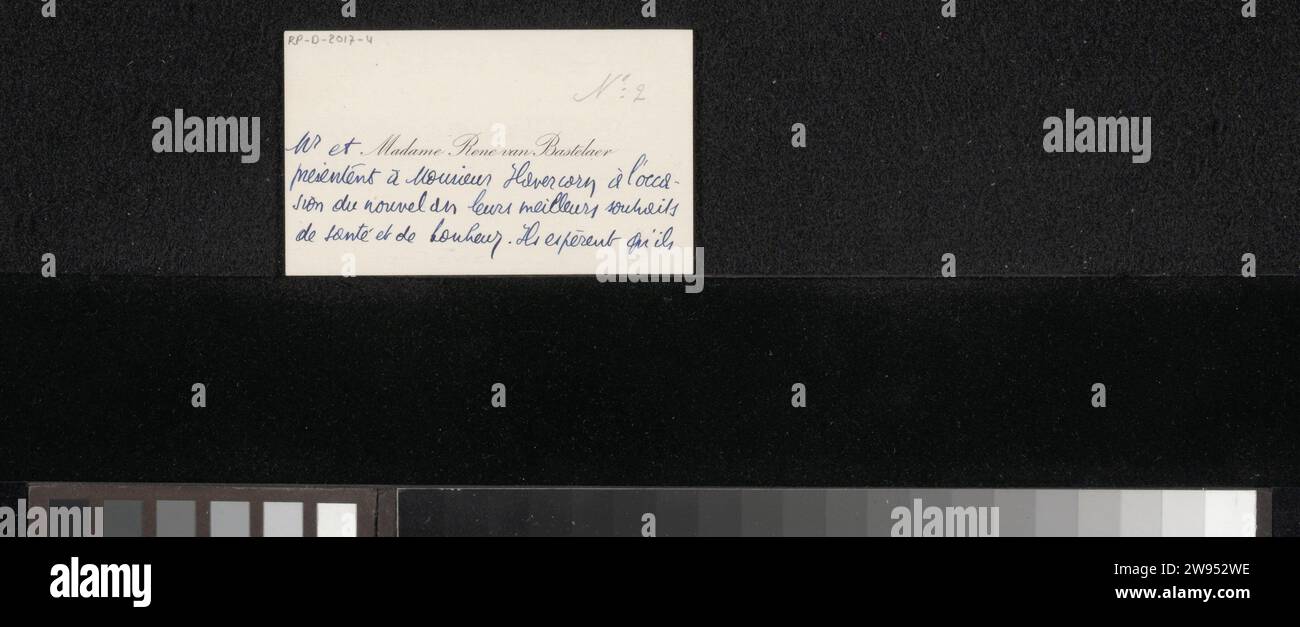 RP-D-2017-4
Nº: 2
Mr et Madame René van Bastelaer
présentent à Monsieur Havercorn à l'occa-
sion du nouvel an leurs meilleurs souhaits
de santé et de bonheur. Ils espèrent qu'ils
alamy
Image ID: 2W952WE
www.alamy.com